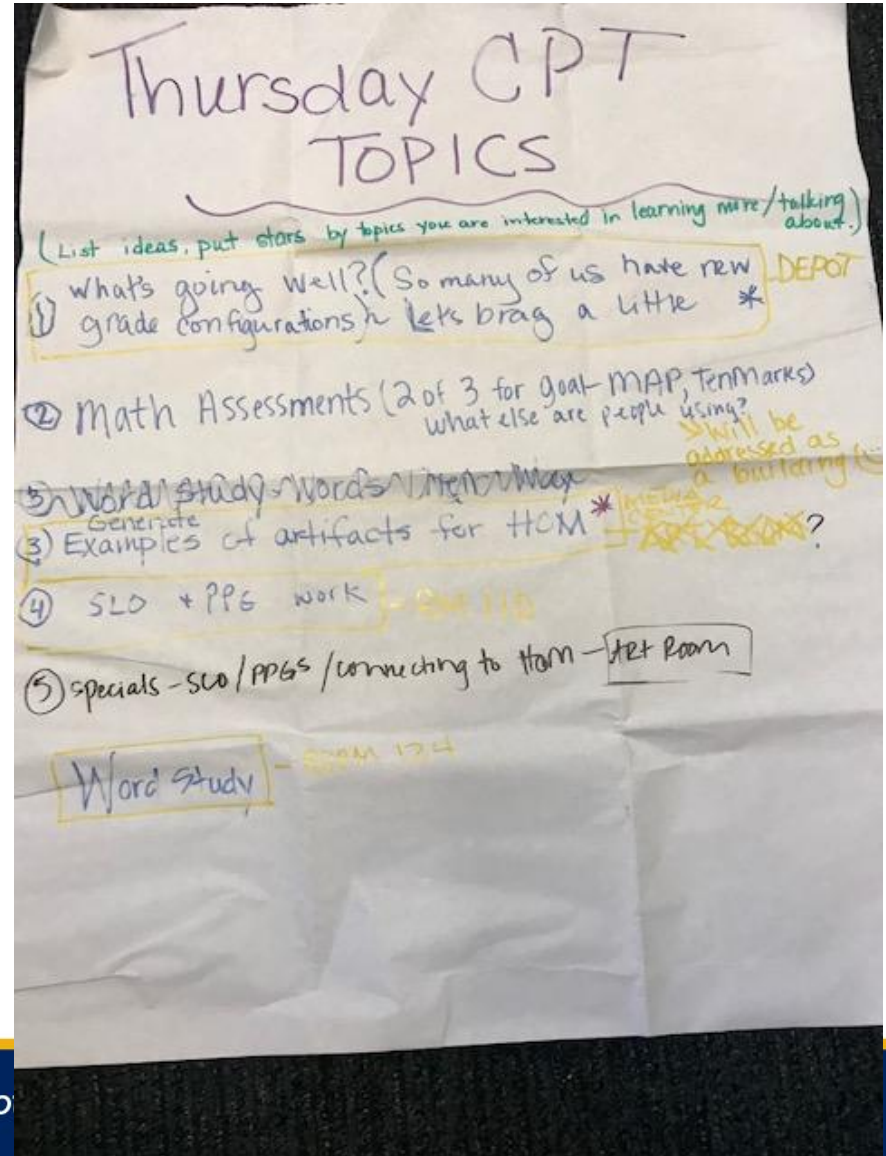 Thursday CPT
TOPICS
(List ideas, put stars by topics you are interested in learning more/talking about.)
① What's going well? (So many of us have new DEPOT
grade configurations) Lets brag a little *
② Math Assessments (2 of 3 for goal-MAP, TenMarks)
what else are people using?
will be
addressed as
a building
Word Study Words
Generate
③ Examples of artifacts for HCM * MEDIA CENTER ?
④ SLO + PPG work
⑤ specials - SLO/PPGs/connecting to Ham - Art Room
Word Study - ROOM 124